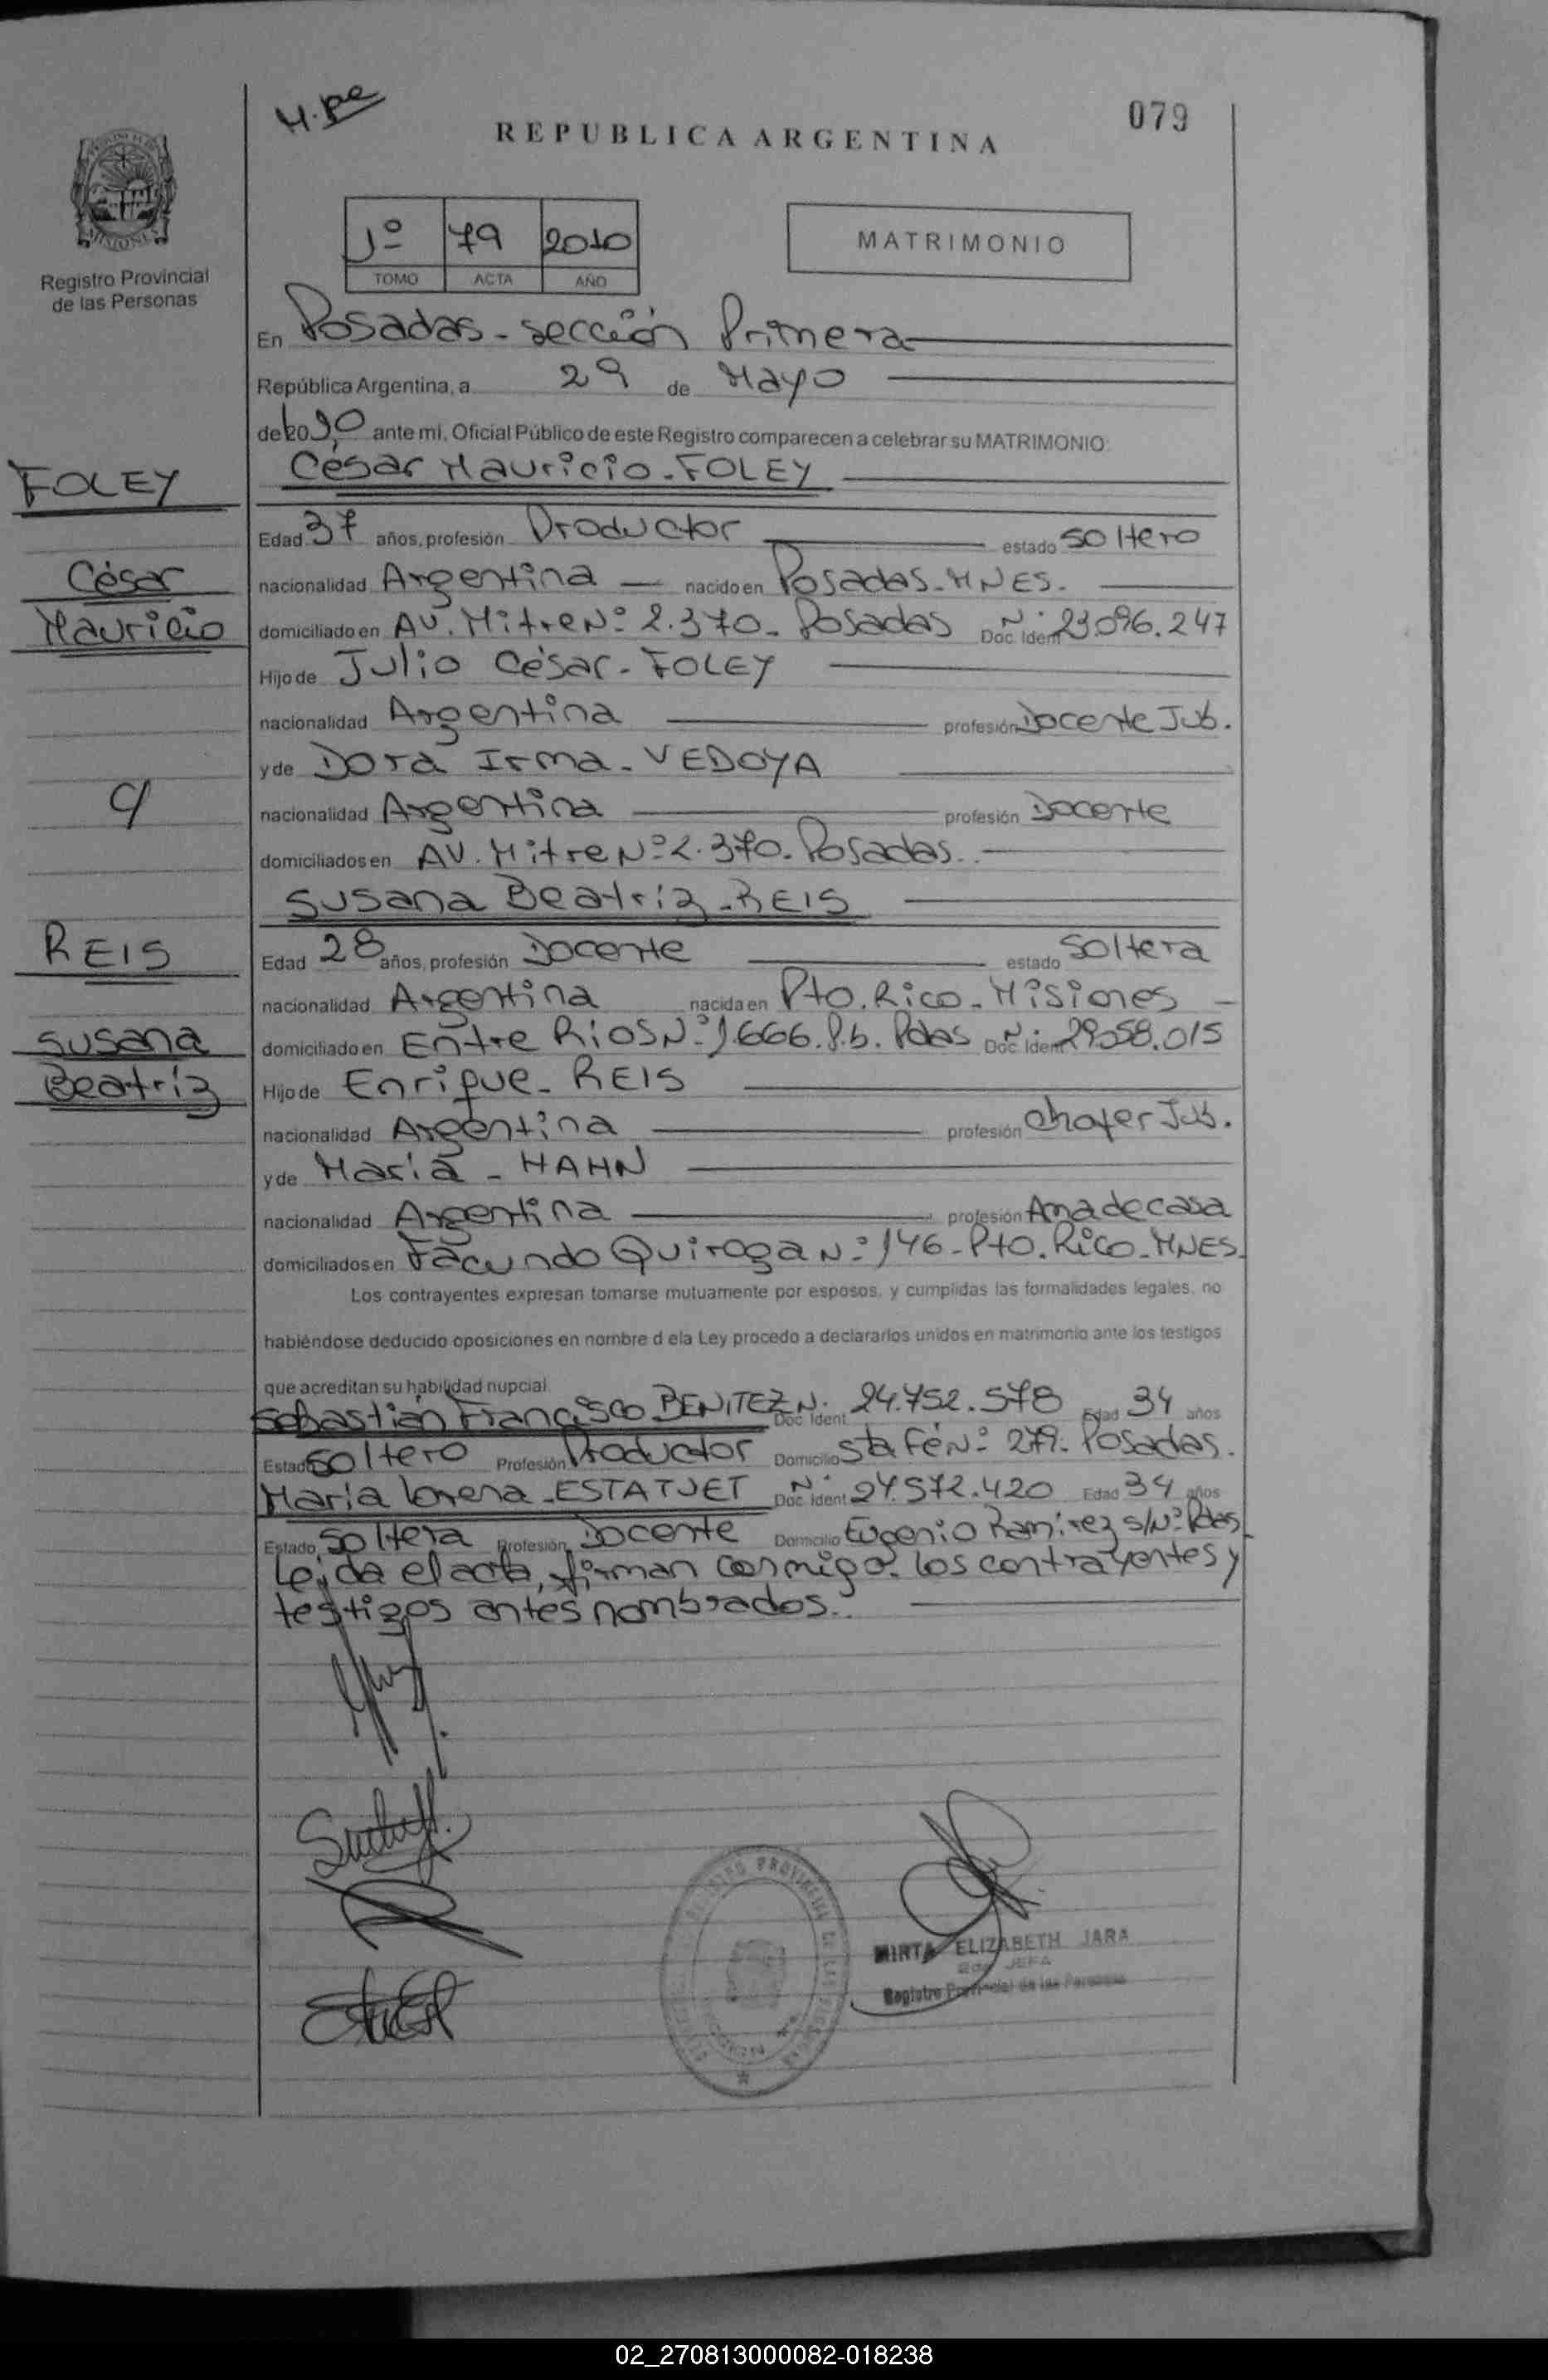 H.pe
079
REPUBLICA ARGENTINA
1º 79 2010
TOMO ACTA AÑO
MATRIMONIO
Registro Provincial
de las Personas
En Posadas - sección Primera
República Argentina, a 29 de Mayo
de 2010 ante mi, Oficial Público de este Registro comparecen a celebrar su MATRIMONIO:
César Mauricio - FOLEY
FOLEY
Edad 37 años, profesión Productor estado soltero
César
nacionalidad Argentina nacido en Posadas - MNES.
Mauricio
domiciliado en Av. Mitre Nº 2.370 - Posadas Doc. Ident Nº 23.096.247
Hijo de Julio César - FOLEY
nacionalidad Argentina profesión Docente Jub.
y de Dora Irma - VEDOYA
C/
nacionalidad Argentina profesión Docente
domiciliados en AV. Mitre Nº 2.370. Posadas.
Susana Beatriz - REIS
REIS
Edad 28 años, profesión Docente estado soltera
nacionalidad Argentina nacida en Pto. Rico - Misiones
Susana
domiciliado en Entre Rios Nº 1.666. P.b. Pdas Doc. Ident Nº 29.058.015
Beatriz
Hijo de Enrique - REIS
nacionalidad Argentina profesión chofer Jub.
y de María - HAHN
nacionalidad Argentina profesión Ama de casa
domiciliados en Facundo Quiroga Nº 146 - Pto. Rico - MNES.
Los contrayentes expresan tomarse mutuamente por esposos, y cumplidas las formalidades legales, no
habiéndose deducido oposiciones en nombre d ela Ley procedo a declararlos unidos en matrimonio ante los testigos
que acreditan su habilidad nupcial
Sebastián Francisco BENITEZ Doc. Ident N. 24.752.578 Edad 34 años
Estado soltero Profesión Productor Domicilio Sta Fé Nº 279. Posadas.
María Lorena - ESTATJET Doc. Ident Nº 24.572.420 Edad 34 años
Estado soltera Profesión Docente Domicilio Eugenio Ramirez s/Nº Pdas
Leida el acta, firman conmigo los contrayentes y
testigos antes nombrados.
REGISTRO PROVINCIAL DE LAS PERSONAS
MIRTA ELIZABETH JARA
JEFA
Registro Provincial de las Personas
02_270813000082-018238